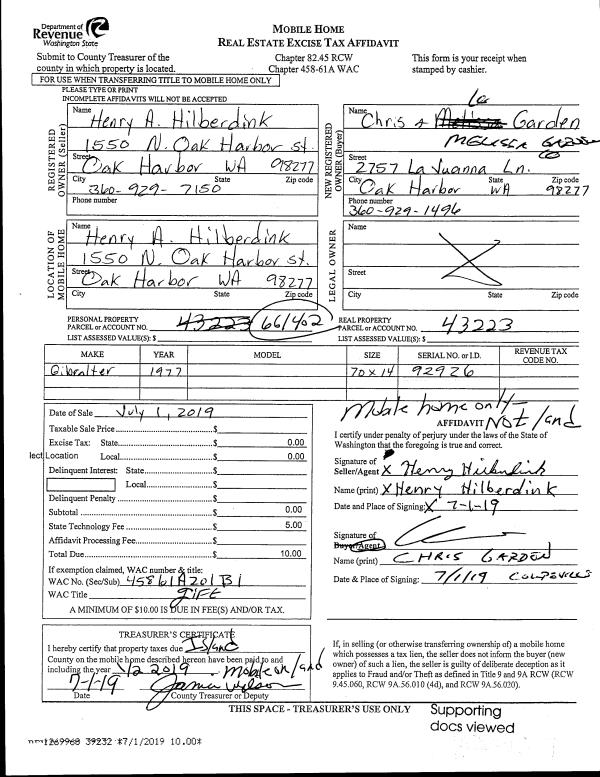 Department of
Revenue
Washington State
MOBILE HOME
REAL ESTATE EXCISE TAX AFFIDAVIT
Submit to County Treasurer of the
county in which property is located.
Chapter 82.45 RCW
Chapter 458-61A WAC
This form is your receipt when
stamped by cashier.
FOR USE WHEN TRANSFERRING TITLE TO MOBILE HOME ONLY
PLEASE TYPE OR PRINT
INCOMPLETE AFFIDAVITS WILL NOT BE ACCEPTED
REGISTERED
OWNER (Seller)
Name
Henry A. Hilberdink
1550 N. Oak Harbor st.
Street
Oak Harbor WA 98277
City State Zip code
360-929-7150
Phone number
NEW REGISTERED
OWNER (Buyer)
Name
Chris & Melissa Garden
MELISSA
Street
2757 La Juanna Ln.
City State Zip code
Oak Harbor WA 98277
Phone number
360-929-1496
LOCATION OF
MOBILE HOME
Name
Henry A. Hilberdink
1550 N. Oak Harbor st.
Street
Oak Harbor WA 98277
City State Zip code
LEGAL OWNER
Name
Street
City State Zip code
PERSONAL PROPERTY
PARCEL or ACCOUNT NO. 43223 661402
LIST ASSESSED VALUE(S): $
REAL PROPERTY
PARCEL or ACCOUNT NO. 43223
LIST ASSESSED VALUE(S): $
MAKE YEAR MODEL SIZE SERIAL NO. or I.D. REVENUE TAX CODE NO.
Gibralter 1977 70 x 14 92926
Date of Sale July 1, 2019
Taxable Sale Price $
Excise Tax: State $ 0.00
lect Location Local $ 0.00
Delinquent Interest: State $
Local $
Delinquent Penalty $
Subtotal $ 0.00
State Technology Fee $ 5.00
Affidavit Processing Fee $
Total Due $ 10.00
If exemption claimed, WAC number & title:
WAC No. (Sec/Sub) 45861A201B1
WAC Title gift
A MINIMUM OF $10.00 IS DUE IN FEE(S) AND/OR TAX.
Mobile home only - Not land
AFFIDAVIT
I certify under penalty of perjury under the laws of the State of
Washington that the foregoing is true and correct.
Signature of
Seller/Agent X Henry Hilberdink
Name (print) X Henry Hilberdink
Date and Place of Signing: X 7-1-19
Signature of
Buyer/Agent
Name (print) CHRIS GARDEN
Date & Place of Signing: 7/1/19 COUPEVILLE
TREASURER'S CERTIFICATE
I hereby certify that property taxes due Island
County on the mobile home described hereon have been paid to and
including the year 1/2 2019 - Mobile on land
7-1-19
Date County Treasurer or Deputy
If, in selling (or otherwise transferring ownership of) a mobile home
which possesses a tax lien, the seller does not inform the buyer (new
owner) of such a lien, the seller is guilty of deliberate deception as it
applies to Fraud and/or Theft as defined in Title 9 and 9A RCW (RCW
9.45.060, RCW 9A.56.010 (4d), and RCW 9A.56.020).
THIS SPACE - TREASURER'S USE ONLY
Supporting
docs viewed
1269968 39232 *7/1/2019 10.00*